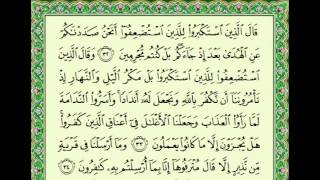 قَالَ الَّذِينَ اسْتَكْبَرُوا لِلَّذِينَ اسْتُضْعِفُوا أَنَحْنُ صَدَدْنَاكُمْ
عَنِ الْهُدَىٰ بَعْدَ إِذْ جَاءَكُمْ بَلْ كُنْتُمْ مُجْرِمِينَ ٣٢ وَقَالَ الَّذِينَ
اسْتُضْعِفُوا لِلَّذِينَ اسْتَكْبَرُوا بَلْ مَكْرُ اللَّيْلِ وَالنَّهَارِ إِذْ
تَأْمُرُونَنَا أَنْ نَكْفُرَ بِاللَّهِ وَنَجْعَلَ لَهُ أَنْدَادًا وَأَسَرُّوا النَّدَامَةَ
لَمَّا رَأَوُا الْعَذَابَ وَجَعَلْنَا الْأَغْلَالَ فِي أَعْنَاقِ الَّذِينَ كَفَرُوا
هَلْ يُجْزَوْنَ إِلَّا مَا كَانُوا يَعْمَلُونَ ٣٣ وَمَا أَرْسَلْنَا فِي قَرْيَةٍ
مِنْ نَذِيرٍ إِلَّا قَالَ مُتْرَفُوهَا إِنَّا بِمَا أُرْسِلْتُمْ بِهِ كَافِرُونَ ٣٤